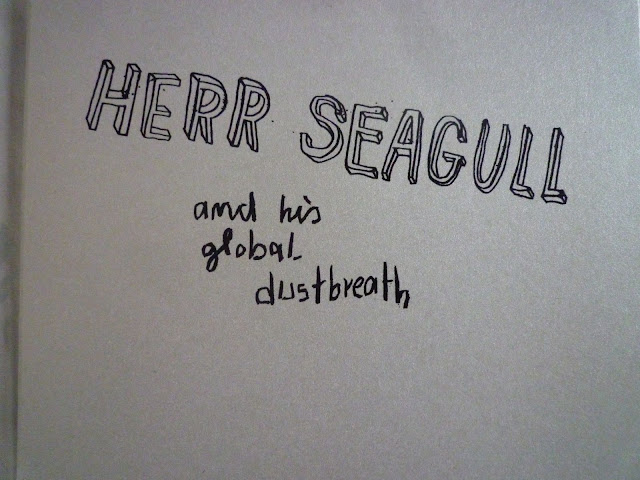 HERR SEAGULL
and his
global
dustbreath